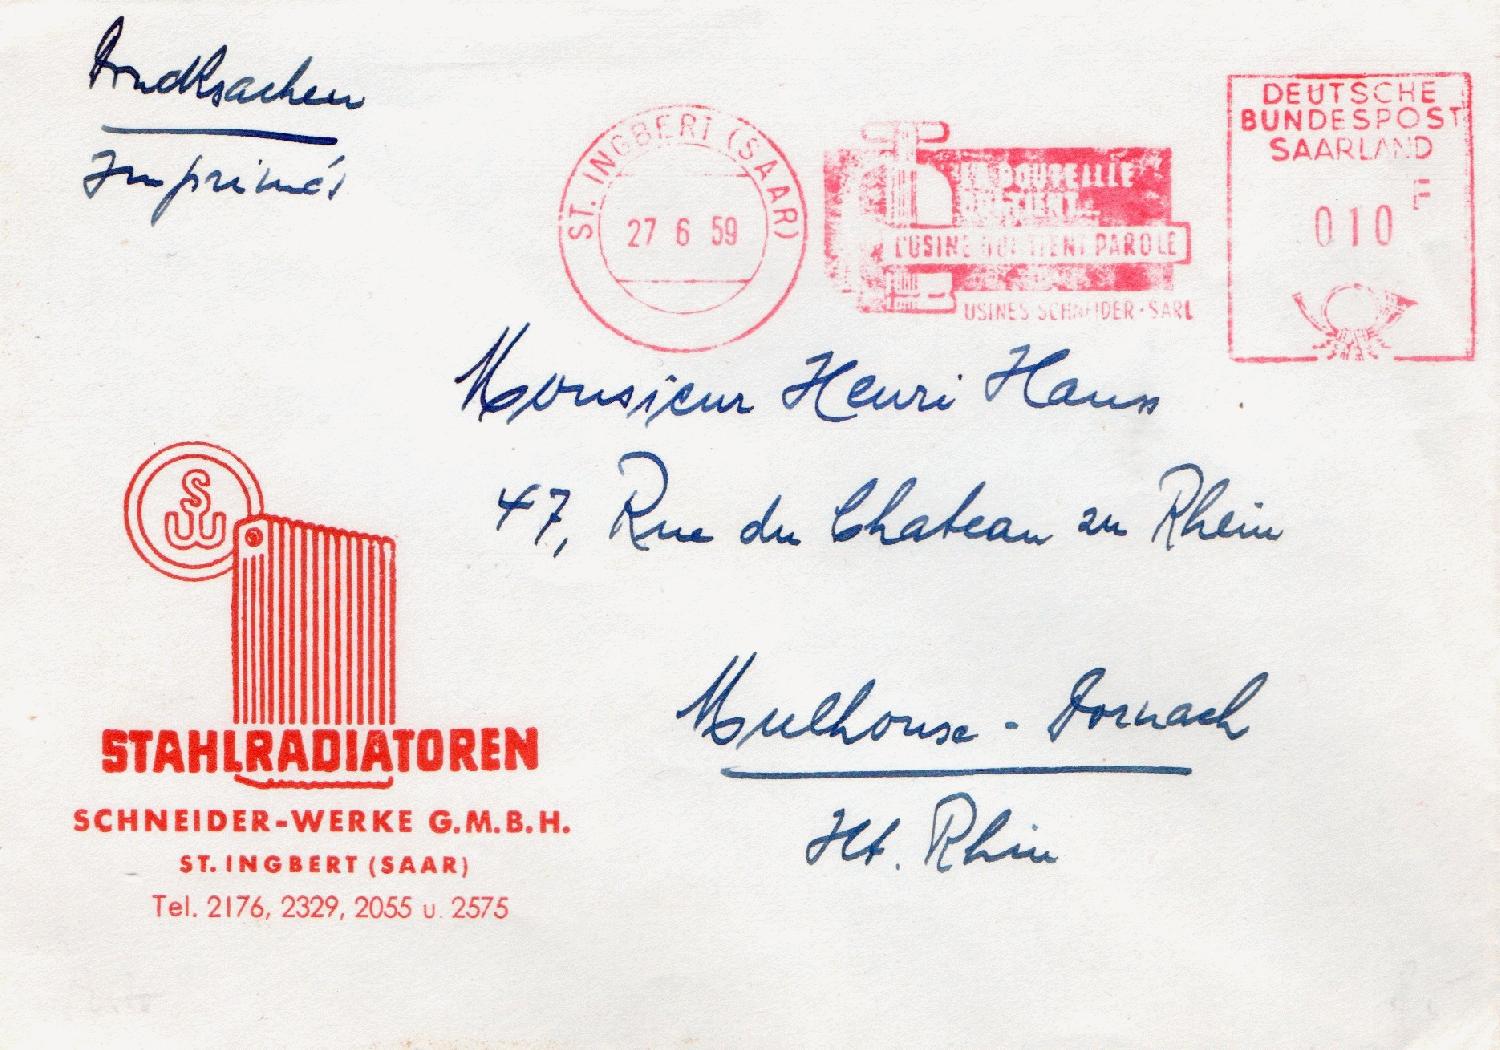 Drucksachen
Imprimés
ST. INGBERT (SAAR)
27 6 59
LA BOUTEILLE
L'USINE QUI TIENT PAROLE
USINES SCHNEIDER-SARL
DEUTSCHE
BUNDESPOST
SAARLAND
F
010
Monsieur Henri Hauss
47, Rue du Chateau zu Rhein
Mulhouse - Dornach
Ht. Rhin
SW
STAHLRADIATOREN
SCHNEIDER-WERKE G.M.B.H.
ST. INGBERT (SAAR)
Tel. 2176, 2329, 2055 u. 2575